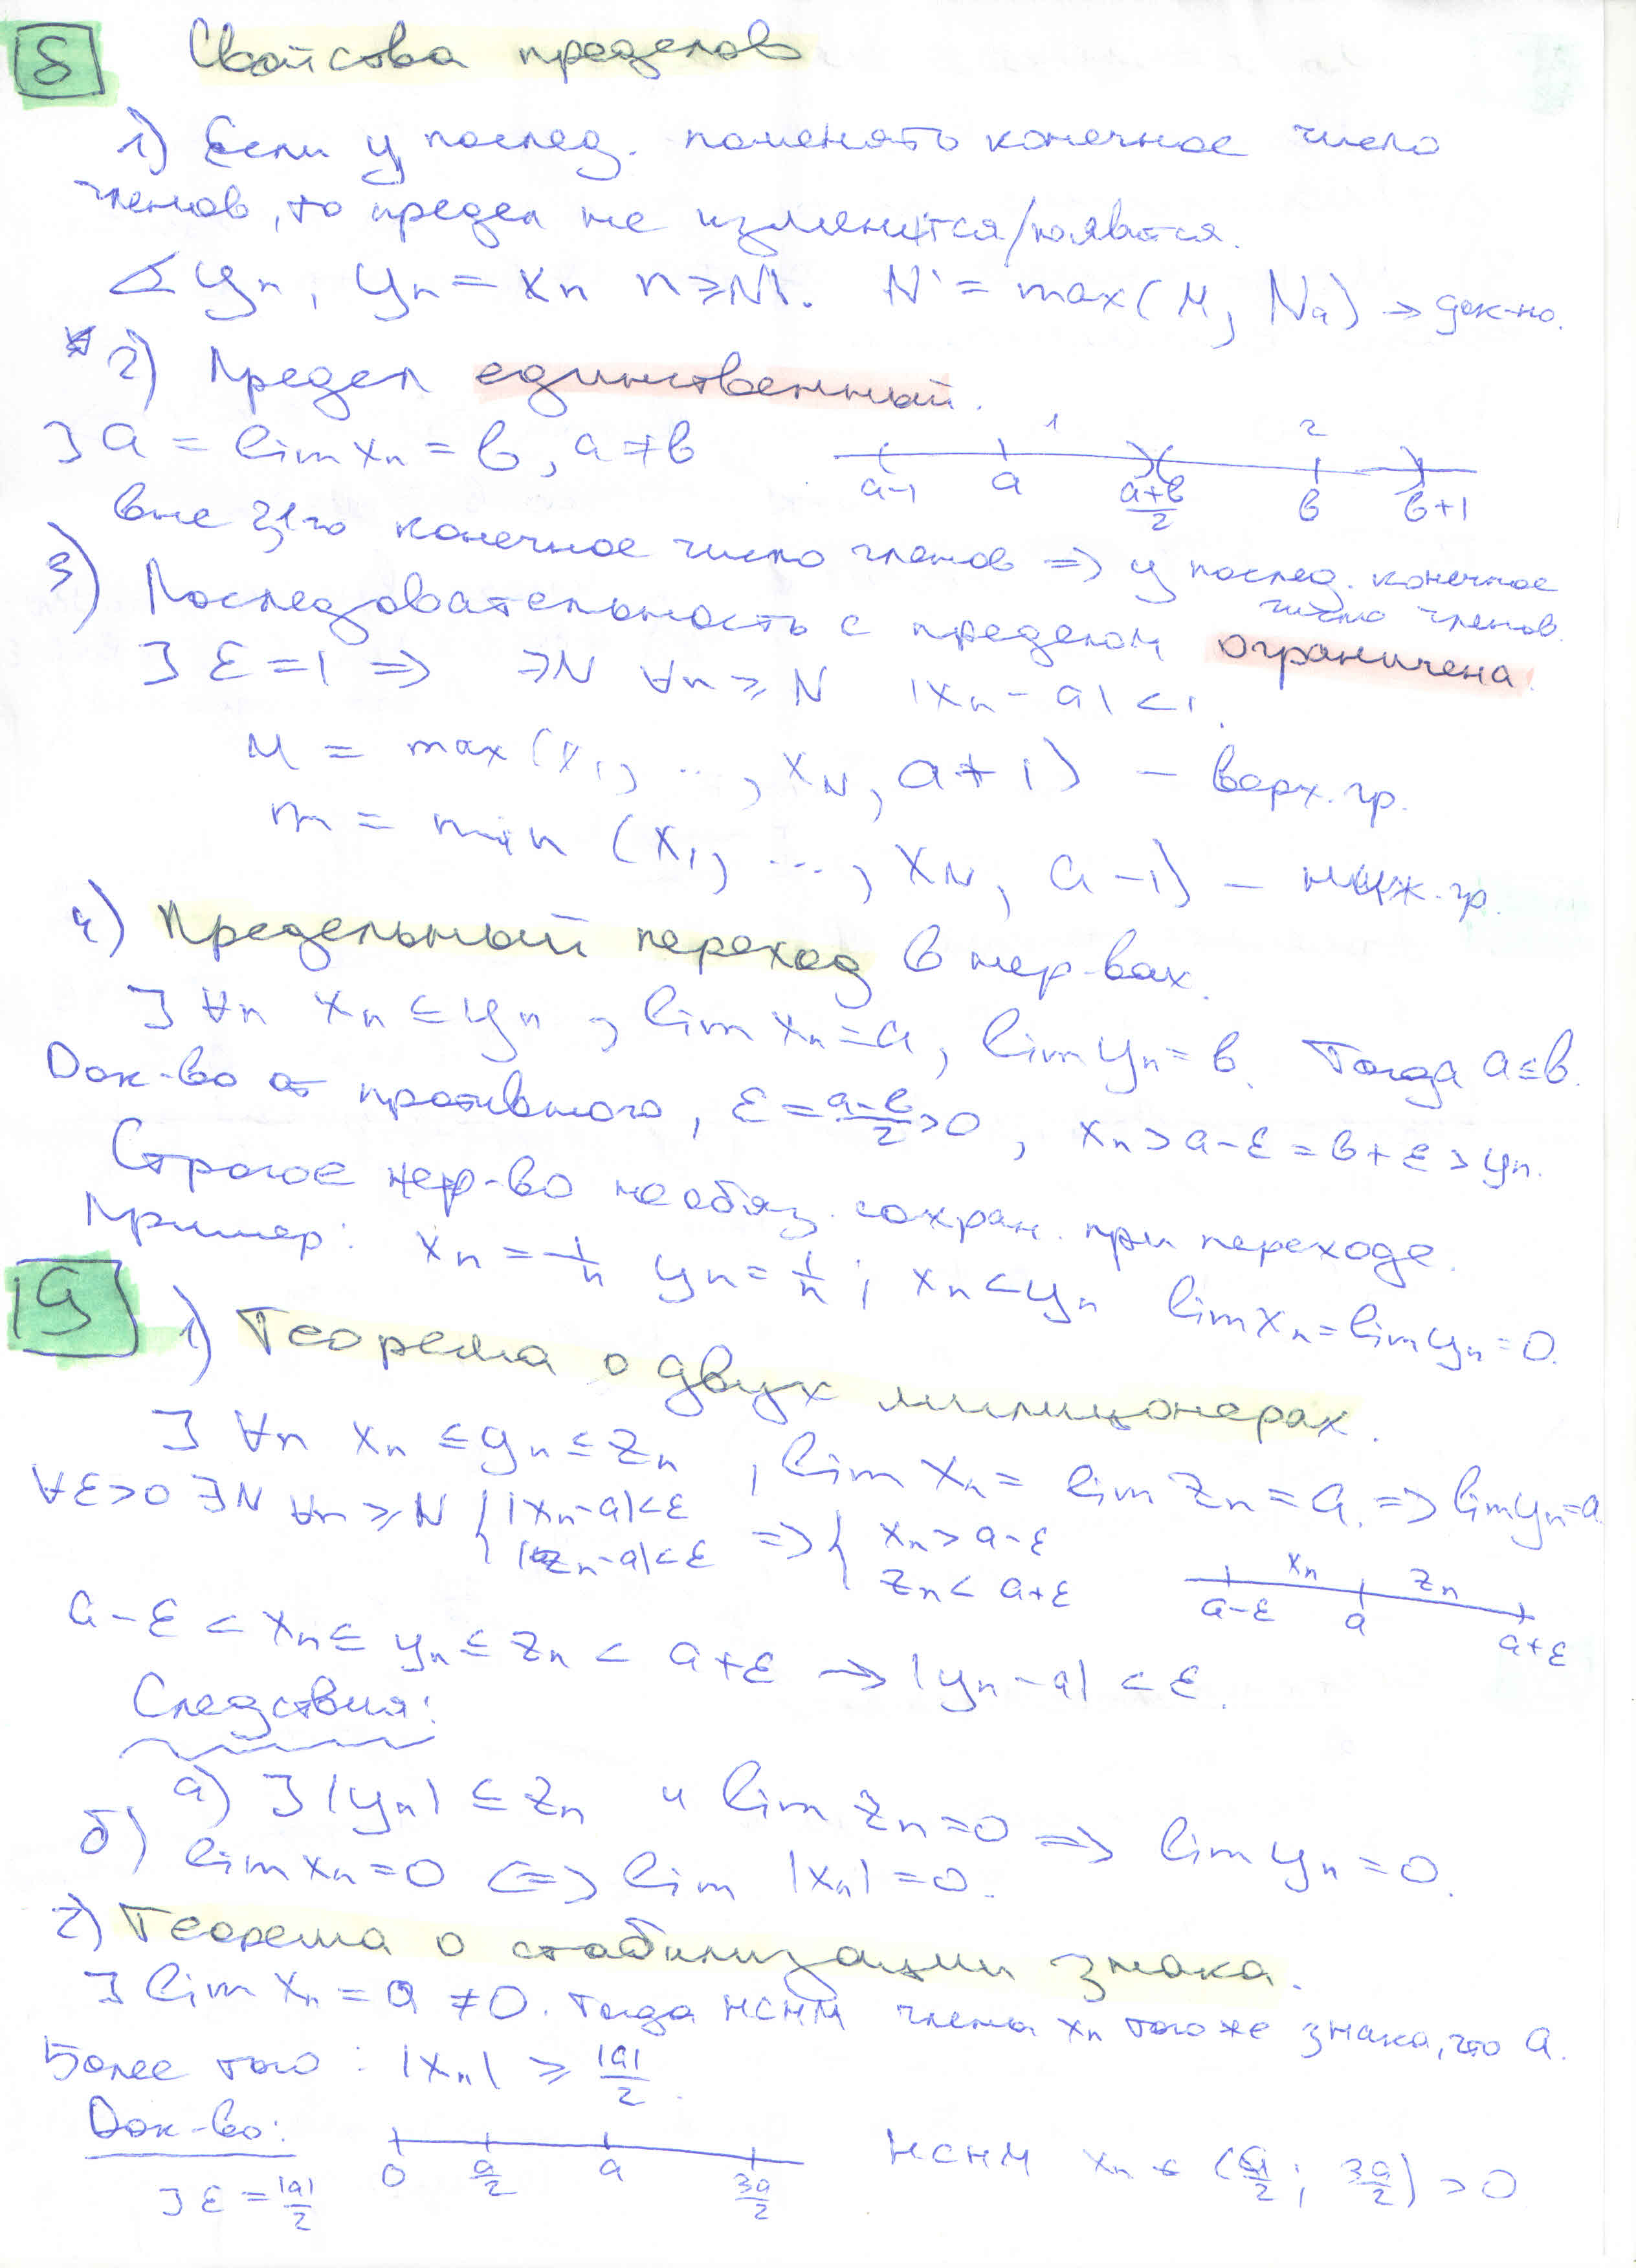 8 Свойства пределов
1) Если у послед. поменять конечное число
членов, то предел не изменится/появится.
∠ yₙ, yₙ = xₙ n ≥ M. N' = max(M, Nₐ) → док-но.
2) Предел единственный.
∃ a = lim xₙ = b, a ≠ b
1 2
a-1 a (a+b)/2 b b+1
вне 1го конечное число членов => у послед. конечное
число членов.
3) Последовательность с пределом ограничена.
∃ ε = 1 => ∃N ∀n ≥ N |xₙ - a| < 1.
M = max(x₁, ..., x_N, a+1) - верх. гр.
m = min (x₁, ..., x_N, a-1) - ниж. гр.
4) Предельный переход в нер-вах.
∃ ∀n xₙ ≤ yₙ, lim xₙ = a, lim yₙ = b. Тогда a ≤ b.
Док-во от противного, ε = (a-b)/2 > 0, xₙ > a-ε = b+ε > yₙ.
Строгое нер-во не обяз. сохран. при переходе.
Пример: xₙ = -1/n yₙ = 1/n; xₙ < yₙ lim xₙ = lim yₙ = 0.
19 1) Теорема о двух милиционерах.
∃ ∀n xₙ ≤ yₙ ≤ zₙ, lim xₙ = lim zₙ = a. => lim yₙ = a.
∀ε>0 ∃N ∀n ≥ N { |xₙ-a| < ε |zₙ-a| < ε => { xₙ > a-ε zₙ < a+ε
xₙ zₙ
a-ε a a+ε
a-ε < xₙ ≤ yₙ ≤ zₙ < a+ε → |yₙ - a| < ε.
Следствия:
а) ∃ |yₙ| ≤ zₙ и lim zₙ = 0 => lim yₙ = 0.
б) lim xₙ = 0 <=> lim |xₙ| = 0.
2) Теорема о стабилизации знака.
∃ lim xₙ = a ≠ 0. Тогда НСНМ члены xₙ того же знака, что a.
Более того: |xₙ| ≥ |a|/2.
Док-во:
∃ ε = |a|/2
0 a/2 a 3a/2
НСНМ xₙ ∈ (a/2; 3a/2) > 0